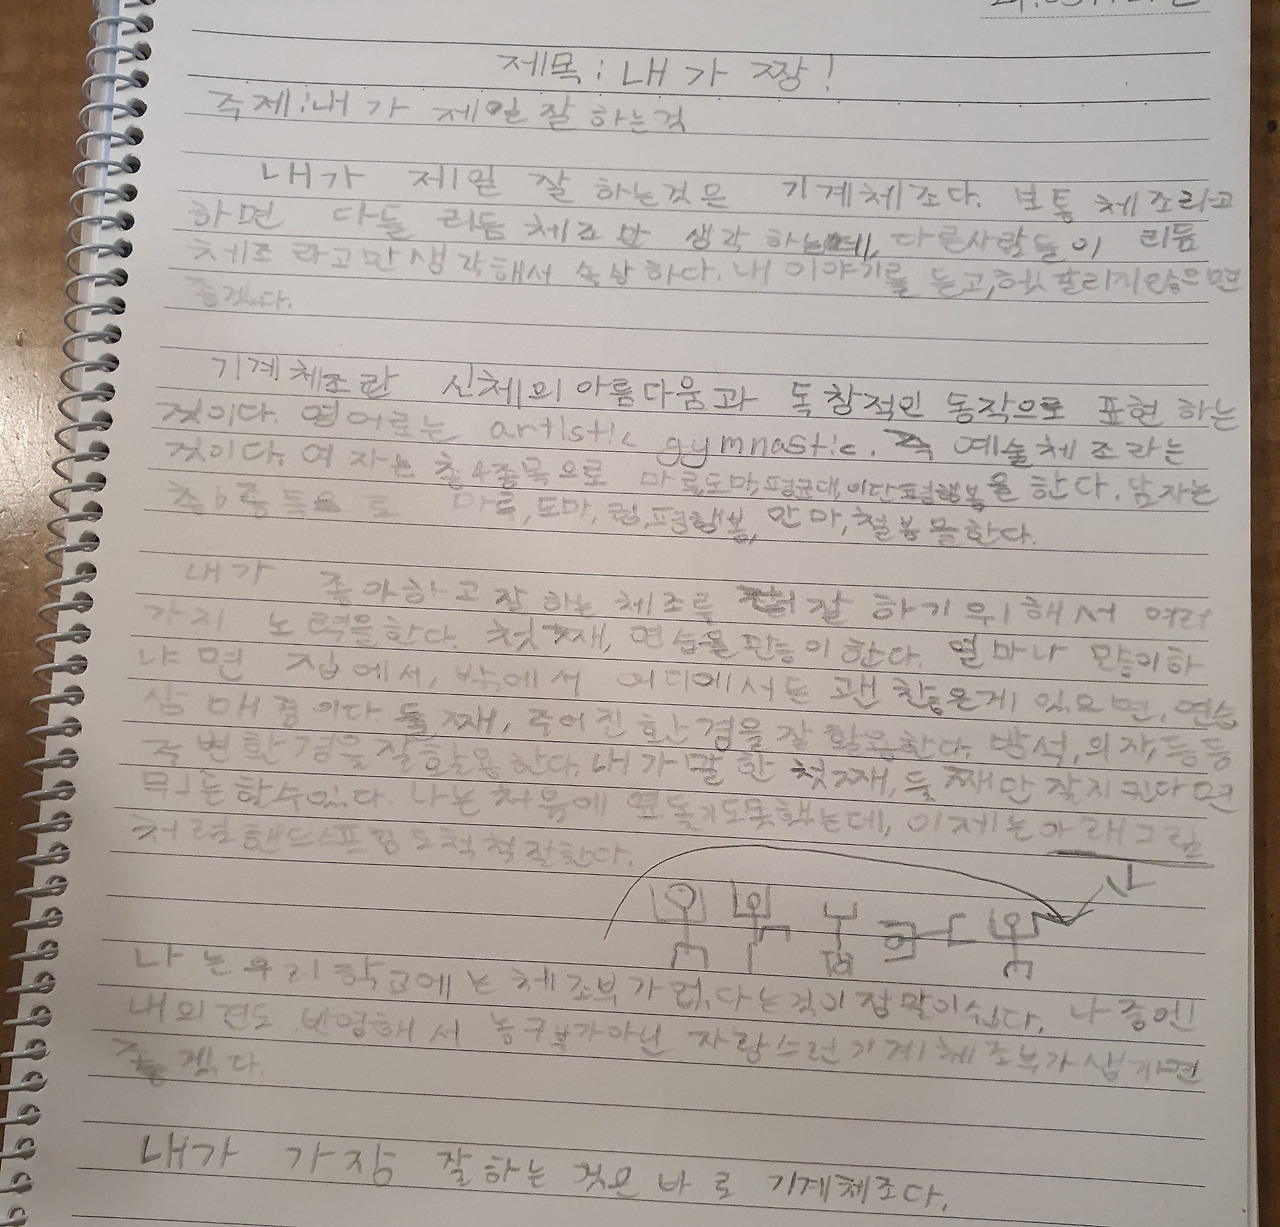 제목 : 내가 짱!
주제 : 내가 제일 잘 하는것
내가 제일 잘 하는것은 기계체조다. 보통 체조라고
하면 다들 리듬 체조만 생각 하는데, 다른사람들이 리듬
체조 라고만 생각해서 속상하다. 내 이야기를 듣고, 헷갈리지않으면
좋겠다.
기계체조란 신체의 아름다움과 독창적인 동작으로 표현 하는
것이다. 영어로는 artistic gymnastic. 즉 예술체조라는
것이다. 여자는 총4종목으로 마루,도마,평균대,이단평행봉을 한다. 남자는
총6종목으로 마루, 도마, 링, 평행봉, 안마, 철봉을한다.
내가 좋아하고 잘 하는 체조를 더 잘 하기 위해서 여러
가지 노력을한다. 첫째, 연습을많이한다. 얼마나 많이하
냐면 집에서, 밖에서 어디에서든 괜찮은게 있으면, 연습
삼매경이다. 둘째, 주어진 환경을 잘 활용한다. 방석, 의자, 등등
주변환경을 잘활용한다. 내가 말한 첫째, 둘째만 잘지킨다면
뭐든할수있다. 나는 처음에 옆돌기도못했는데, 이제는 아래그림
처럼핸드스프링도척척잘한다.
나는우리학교에는 체조부가 없다는것이 정말아쉽다. 나중엔
내의견도 반영해서 농구부가아닌 자랑스런기계체조부가 생기면
좋겠다.
내가 가장 잘하는 것은 바로 기계체조다.